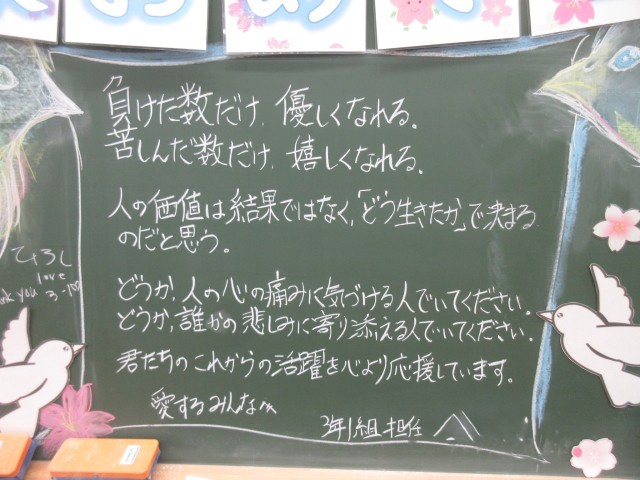 負けた数だけ、優しくなれる。
苦しんだ数だけ、嬉しくなれる。
人の価値は結果ではなく、「どう生きたか」で決まる
のだと思う。
どうか、人の心の痛みに気づける人でいてください。
どうか、誰かの悲しみに寄り添える人でいてください。
君たちのこれからの活躍を心より応援しています。
愛するみんなへ
3年1組 担任
ひろし
love
you 3-1